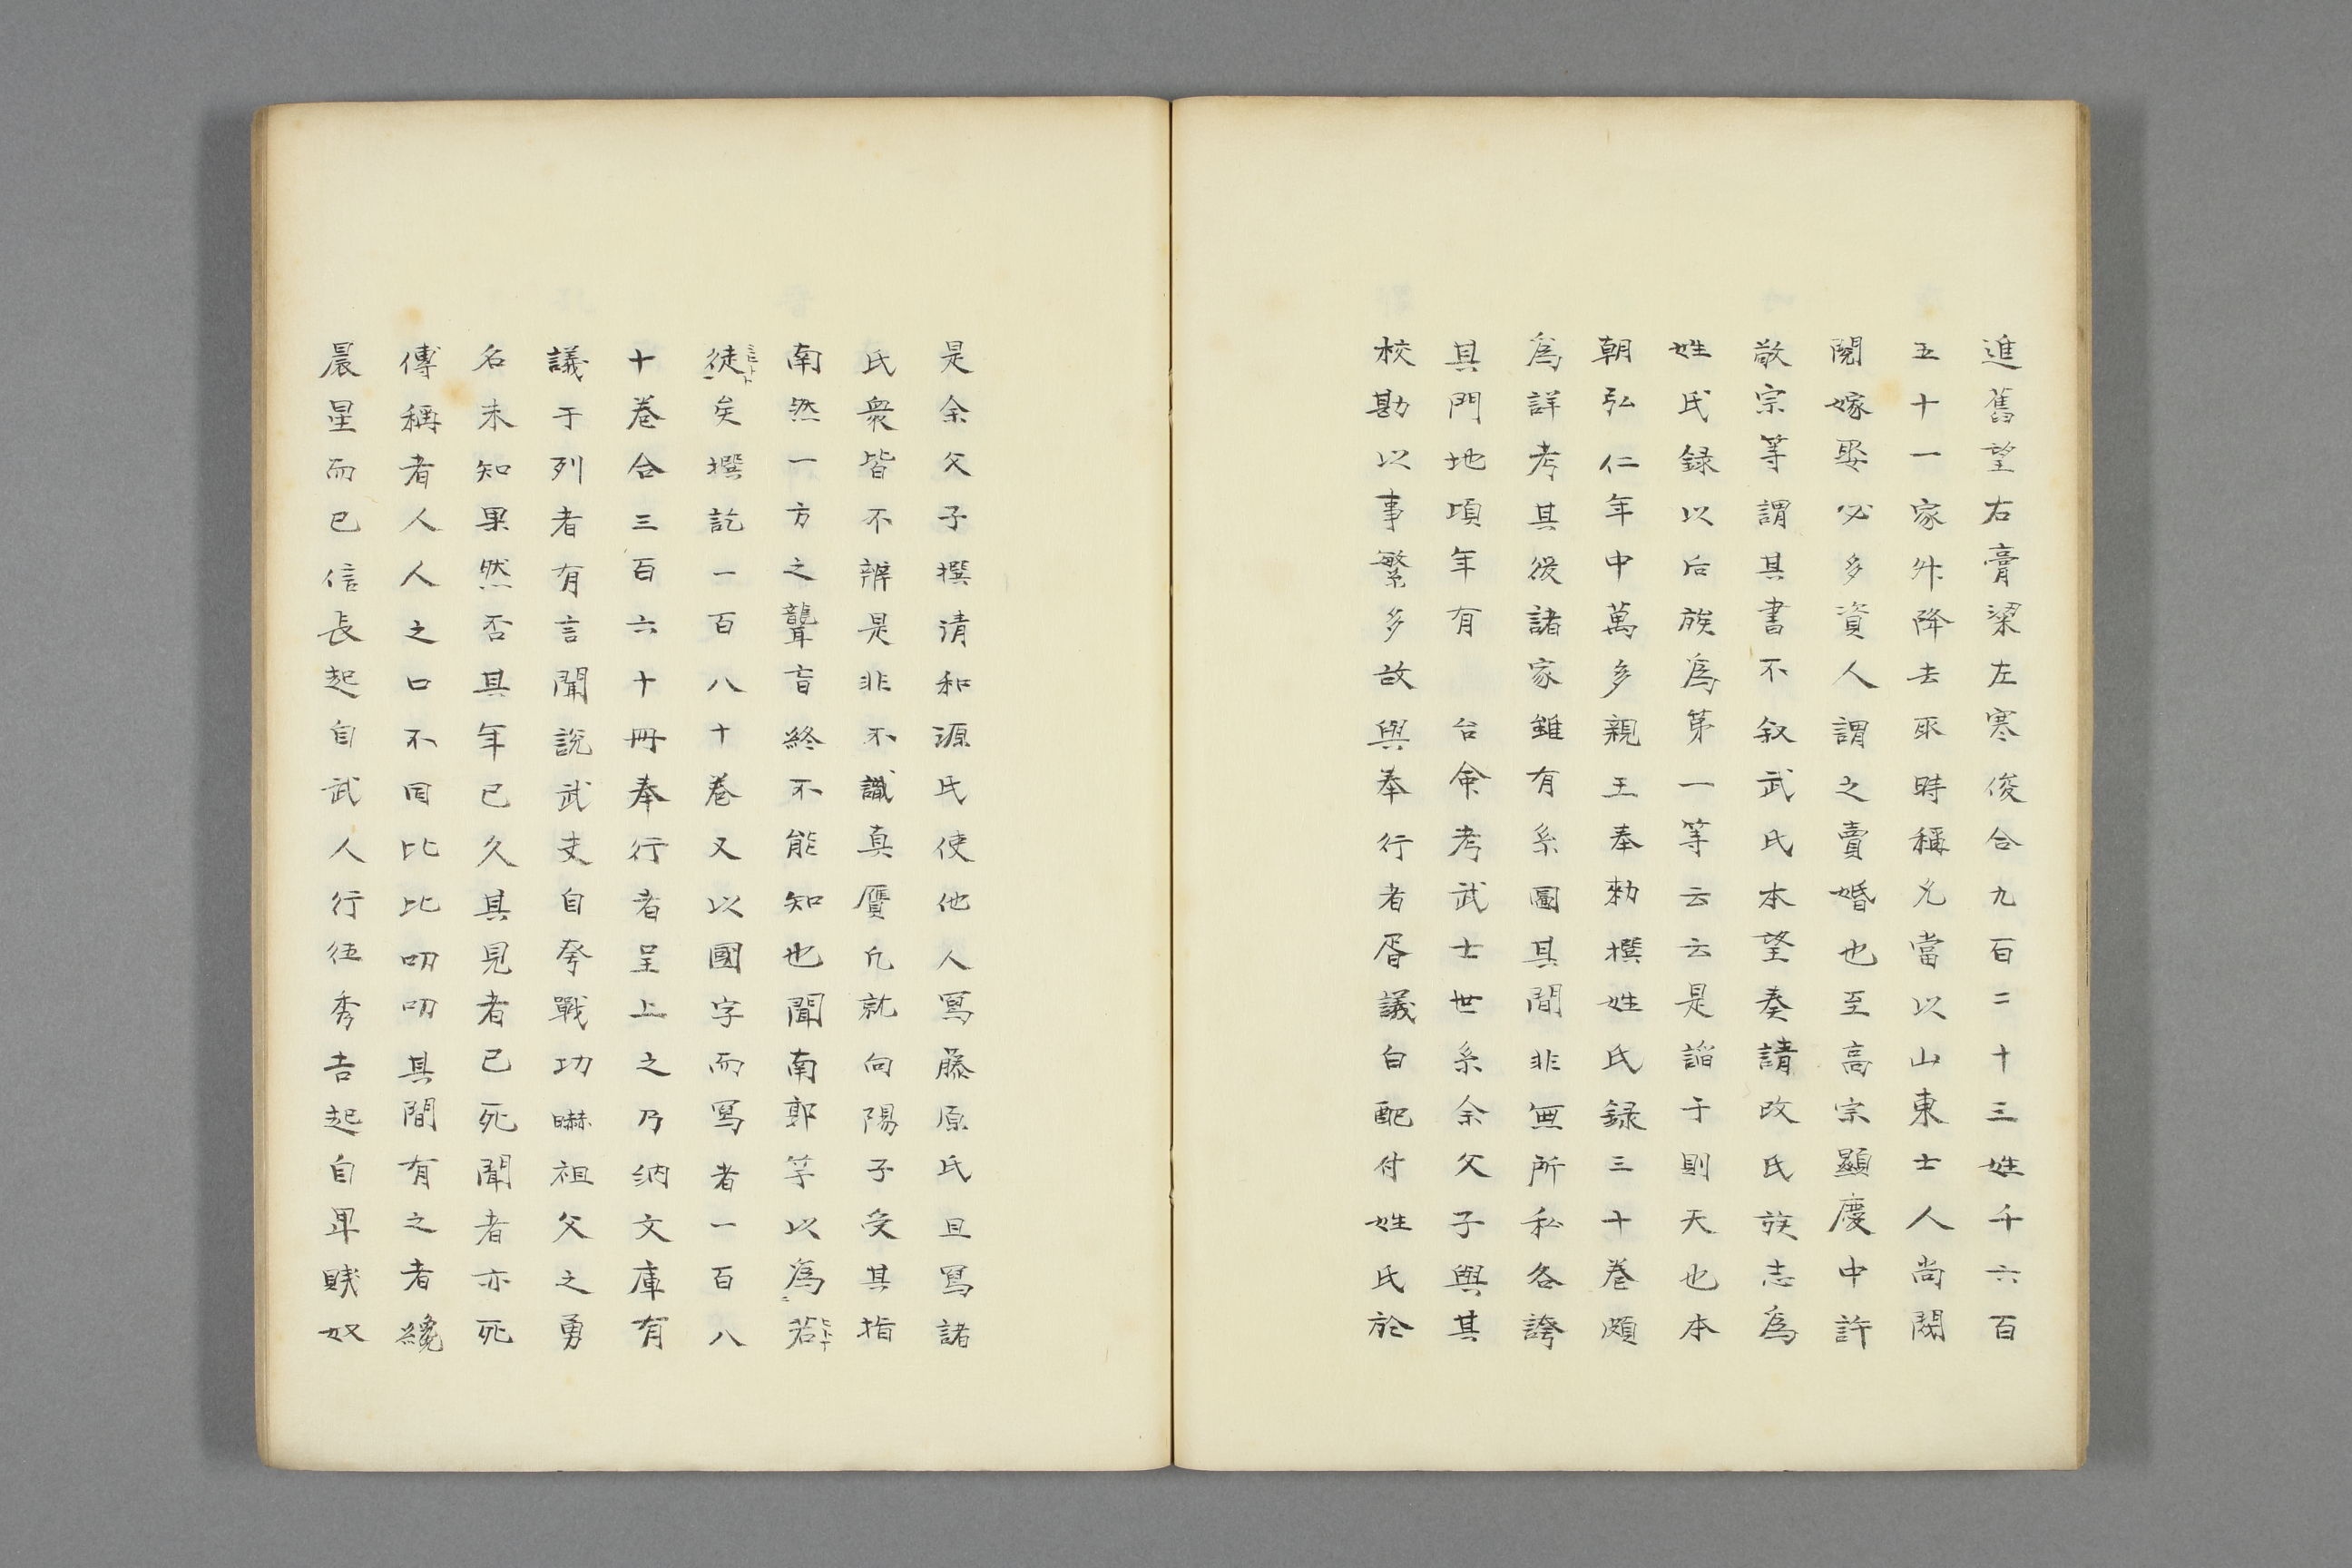 進舊望右膏梁左寒俊合九百二十三姓千六百
五十一家外降去取時稱允當以山東士人尚閥
閱嫁娶必多資人謂之賣婚也至高宗顯慶中許
敬宗等謂其書不叙武氏本望奏請改氏族志爲
姓氏録以后族爲第一等云云是諂于則天也本
朝弘仁年中萬多親王奉勅撰姓氏録三十巻頗
爲詳考其後諸家雖有系圖其間非無所私各誇
其門地頃年有　台命考武士世系余父子與其
校勘以事繁多故與奉行者胥議白配付姓氏於
是余父子撰清和源氏使他人寫藤原氏且寫諸
氏衆皆不辨是非不識真贋凢就向陽子受其指
南然一方之聾盲終不能知也聞南郭竽以爲若
徒矣撰訖一百八十巻又以國字而寫者一百八
十巻合三百六十冊奉行者呈上之乃納文庫有
議于列者有言聞説武夫自夸戰功嚇祖父之勇
名未知果然否其年已久其見者已死聞者亦死
傳稱者人人之口不同比比叨叨其間有之者纔
晨星而已信長起自武人行伍秀吉起自卑賤奴